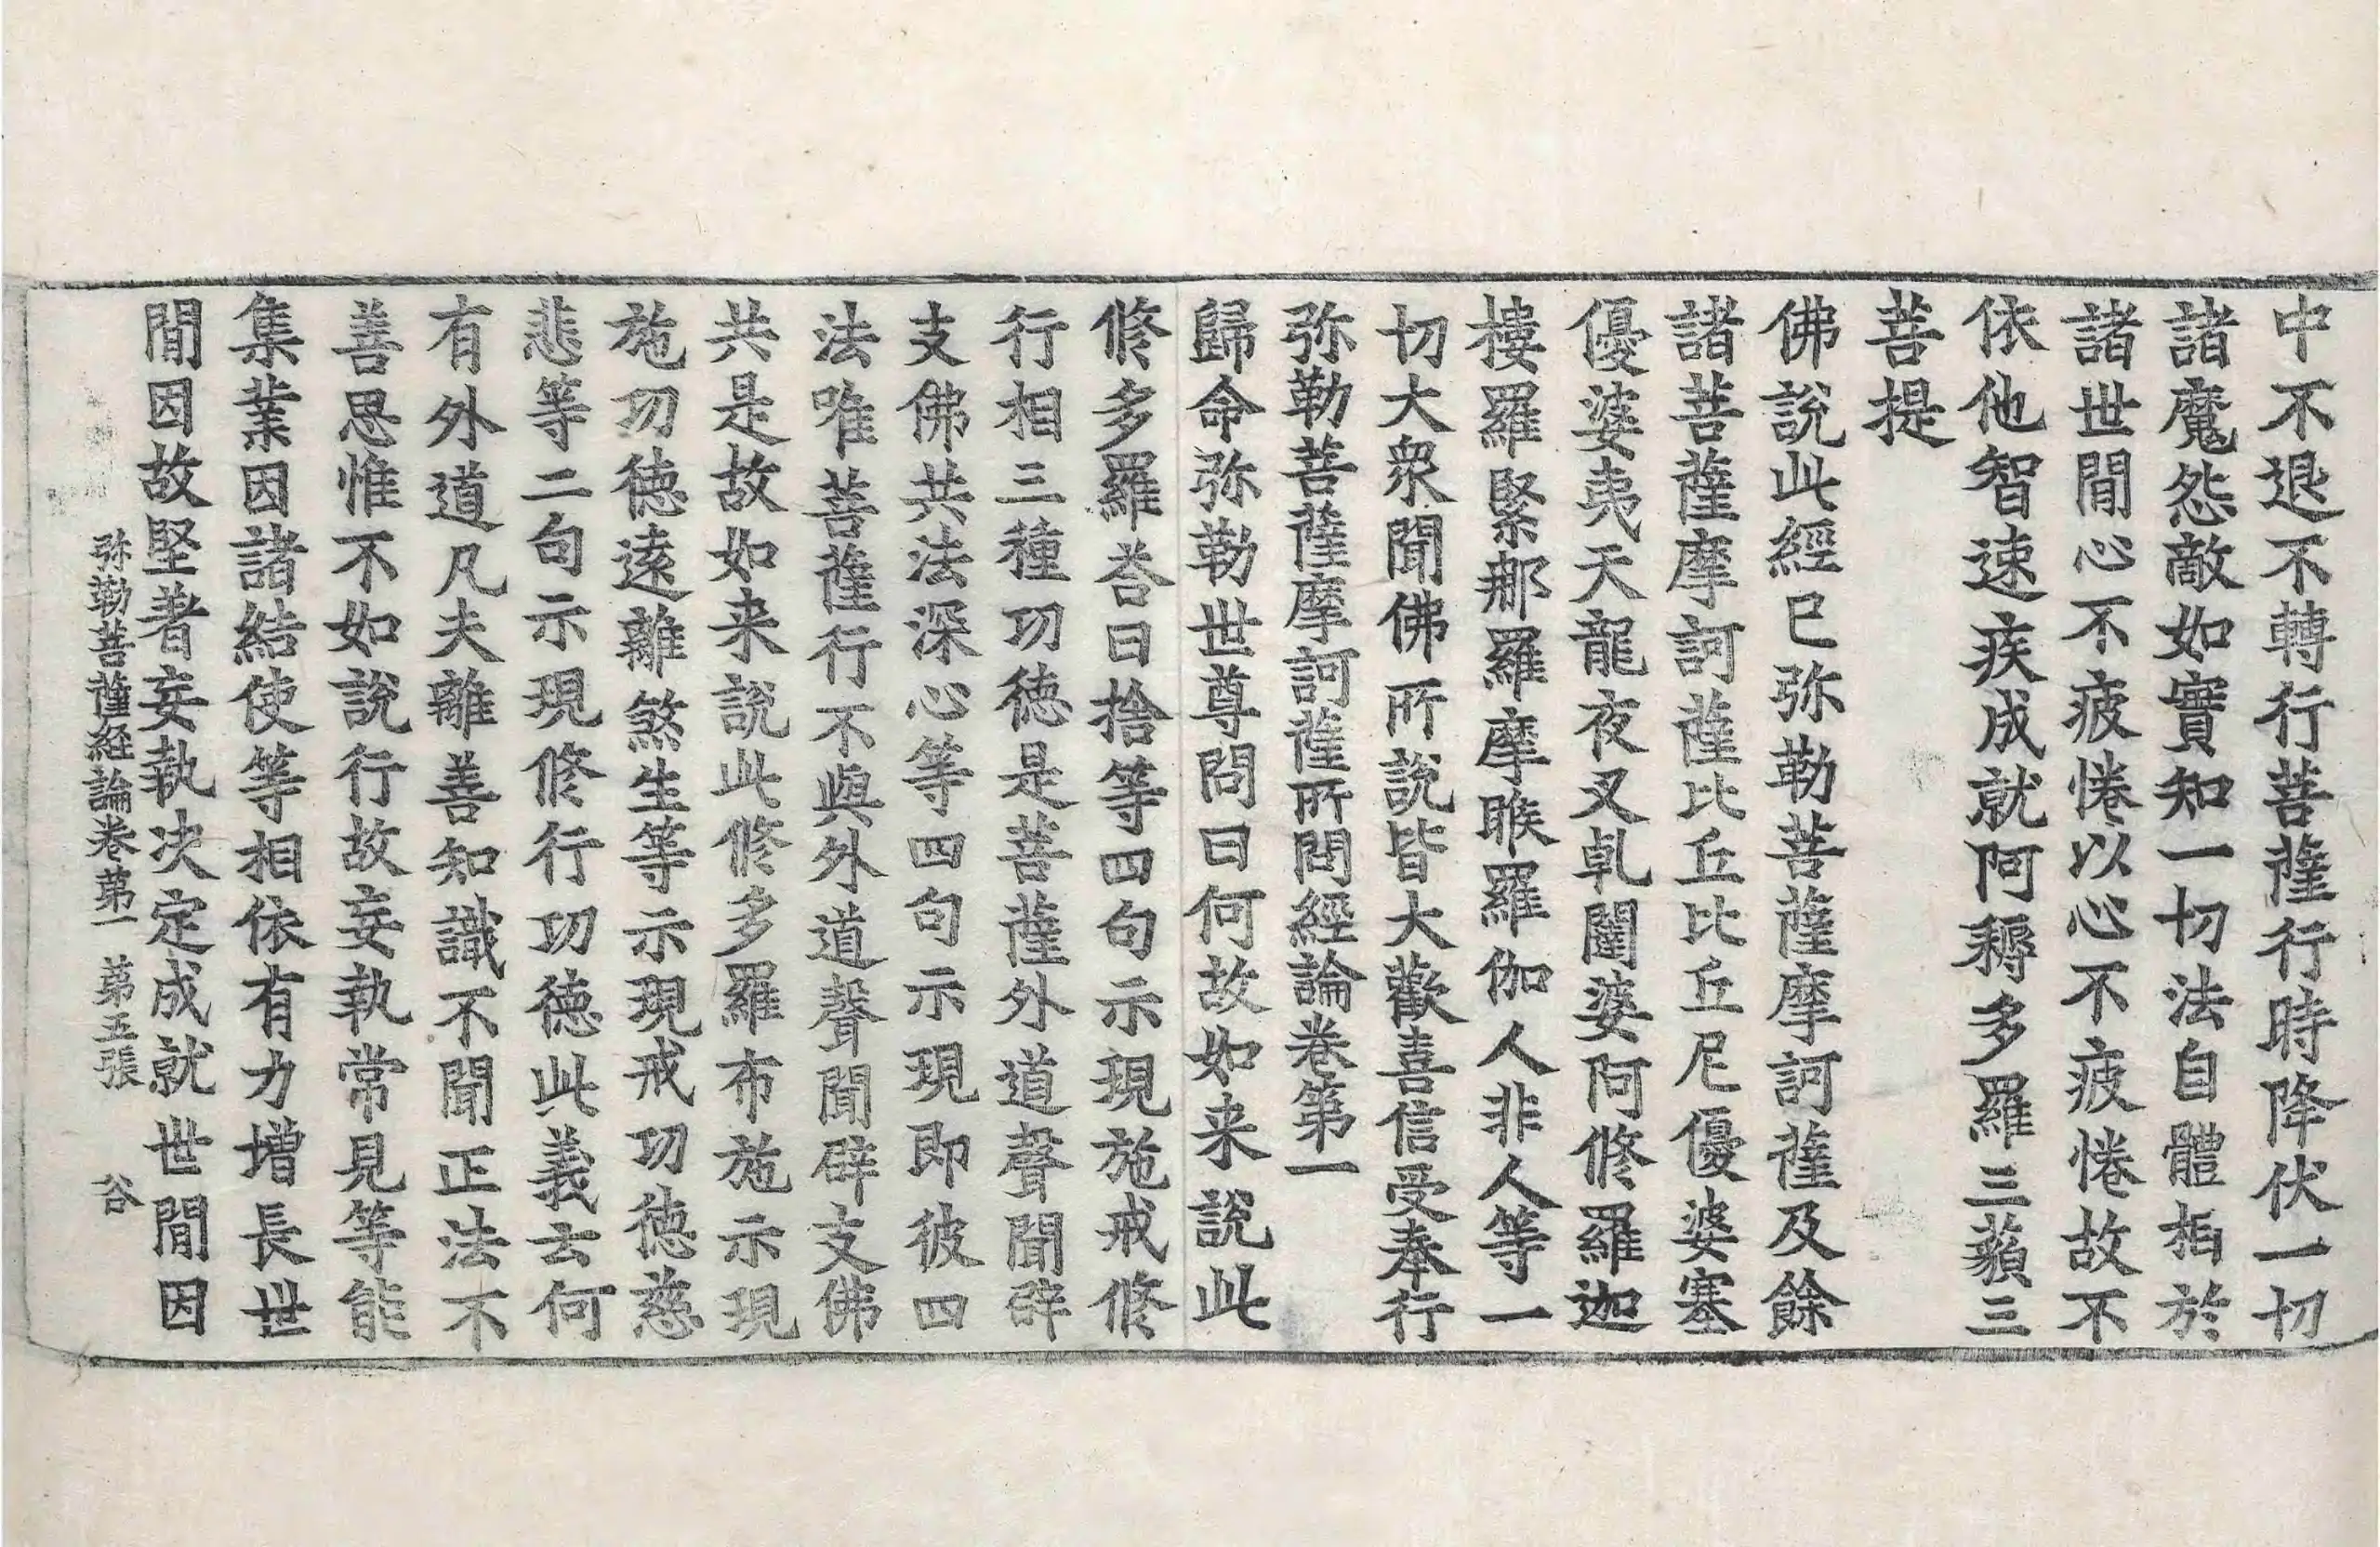 中不退不轉行菩薩行時降伏一切
諸魔怨敵如實知一切法自體相於
諸世間心不疲惓以心不疲惓故不
依他智速疾成就阿耨多羅三藐三
菩提
佛說此經已弥勒菩薩摩訶薩及餘
諸菩薩摩訶薩比丘比丘尼優婆塞
優婆夷天龍夜叉乹闥婆阿修羅迦
樓羅緊那羅摩睺羅伽人非人等一
切大衆聞佛所說皆大歡喜信受奉行
弥勒菩薩摩訶薩所問經論卷第一
歸命弥勒世尊問曰何故如来說此
修多羅荅曰捨等四句示現施戒修
行相三種功德是菩薩外道聲聞辟
支佛共法深心等四句示現即彼四
法唯菩薩行不與外道聲聞辟支佛
共是故如来說此修多羅布施示現
施功德遠離煞生等示現戒功德慈
悲等二句示現修行功德此義云何
有外道凡夫離善知識不聞正法不
善思惟不如說行故妄執常見等能
集業因諸結使等相依有力增長世
間因故堅著妄執决定成就世間因
弥勒菩薩経論卷第一 第五張 谷